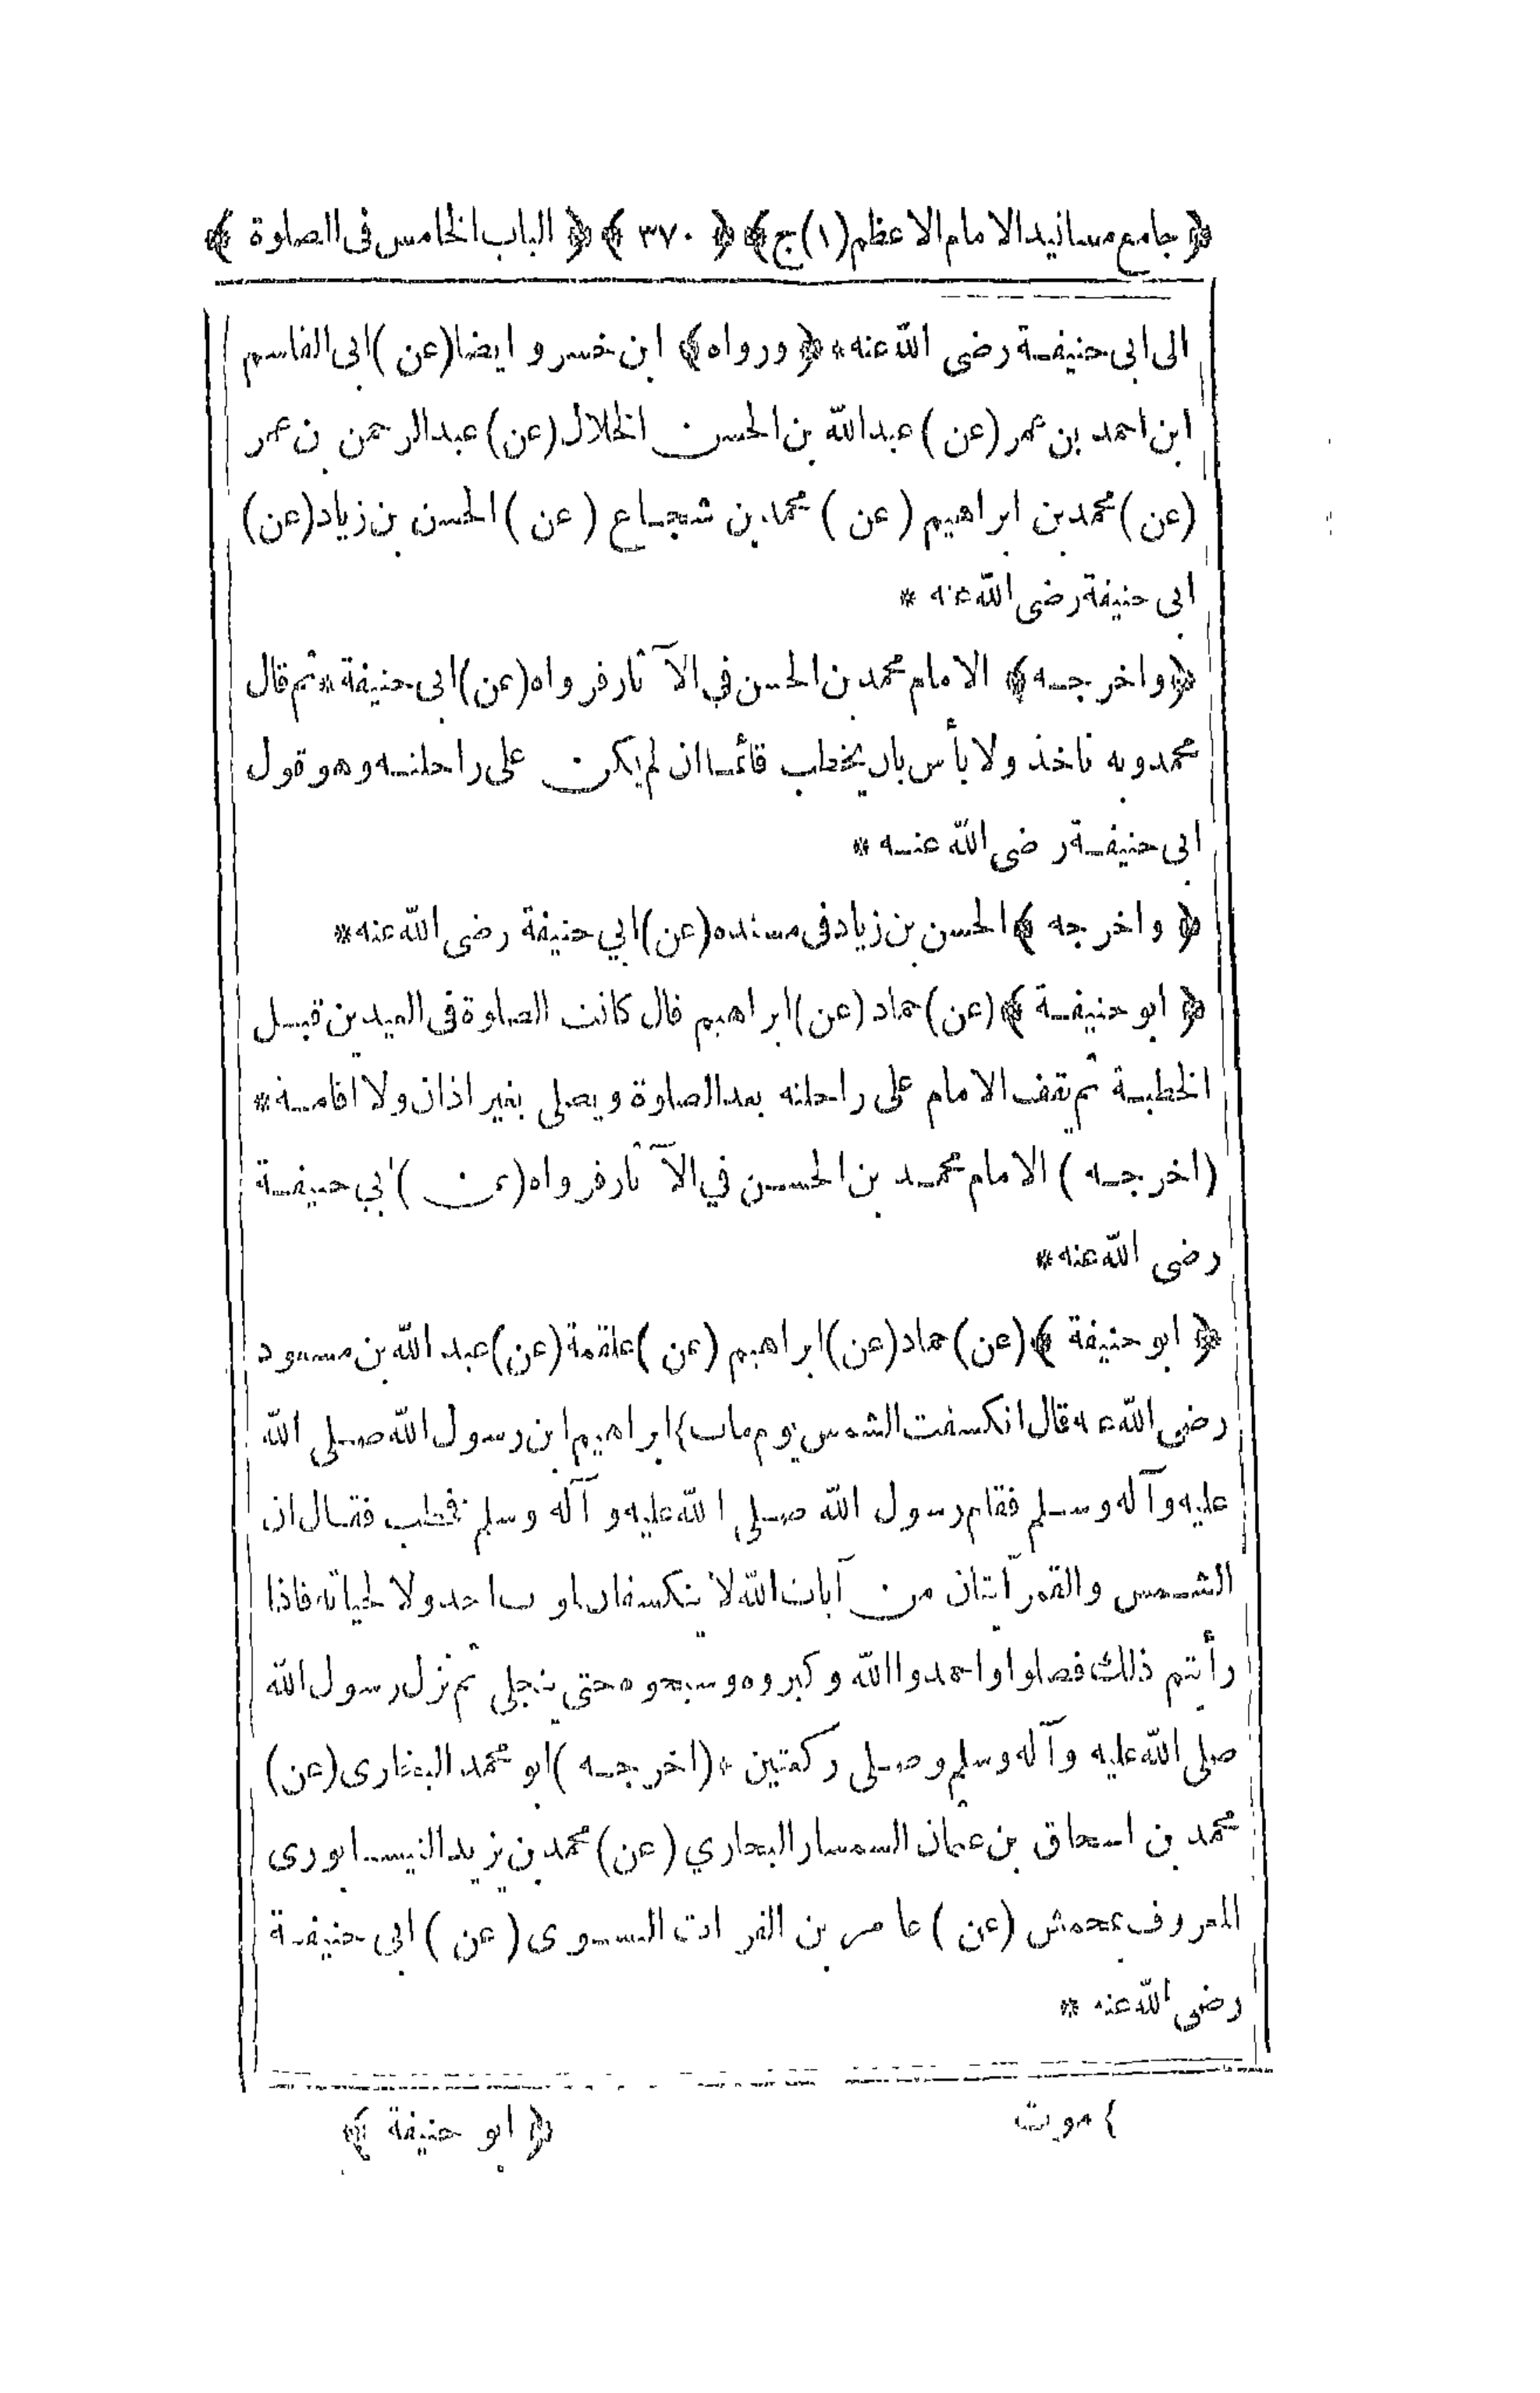 ﴿ جامع مسانيد الامام الاعظم (١) ج ﴾ ﴿ ٣٧٠ ﴾ ﴿ الباب الخامس فى الصلوة ﴾
الى ابى حنيفة رضى الله عنه * ﴿ ورواه ﴾ ابن خسرو ايضا (عن) ابى القاسم
ابن احمد بن عمر (عن) عبد الله بن الحسن الخلال (عن) عبد الرحمن بن عمر
(عن) محمد بن ابراهيم (عن) محمد بن شجاع (عن) الحسن بن زياد (عن)
ابى حنيفة رضى الله عنه *
﴿ واخرجه ﴾ الامام محمد بن الحسن في الآثار فرواه (عن) ابى حنيفة * ثم قال
محمد وبه ناخذ ولا بأس بان يخطب قائما ان لم يكن على راحلته وهو قول
ابى حنيفة رضى الله عنه *
﴿ واخرجه ﴾ الحسن بن زياد فى مسنده (عن) ابي حنيفة رضى الله عنه *
﴿ ابو حنيفة ﴾ (عن) حماد (عن) ابراهيم قال كانت الصلوة فى العيدين قبل
الخطبة ثم يقف الامام على راحلته بعد الصلوة ويصلى بغير اذان ولا اقامة *
(اخرجه) الامام محمد بن الحسن في الآثار فرواه (عن) ابي حنيفة
رضى الله عنه *
﴿ ابو حنيفة ﴾ (عن) حماد (عن) ابراهيم (عن) علقمة (عن) عبد الله بن مسعود
رضى الله عنه قال انكسفت الشمس يوم مات } ابراهيم ابن رسول الله صلى الله
عليه وآله وسلم فقام رسول الله صلى الله عليه وآله وسلم فخطب فقال ان
الشمس والقمر آيتان من آيات الله لا ينكسفان لموت احد ولا لحياته فاذا
رأيتم ذلك فصلوا واحمدوا الله وكبروه وسبحوه حتى ينجلى ثم نزل رسول الله
صلى الله عليه وآله وسلم وصلى ركعتين * (اخرجه) ابو محمد البخارى (عن)
محمد بن اسحاق بن عثمان السمسار البخاري (عن) محمد بن يزيد النيسابورى
المعروف بمحمش (عن) عامر بن الفرات النسوى (عن) ابى حنيفة
رضى الله عنه *
} موت
﴿ ابو حنيفة ﴾